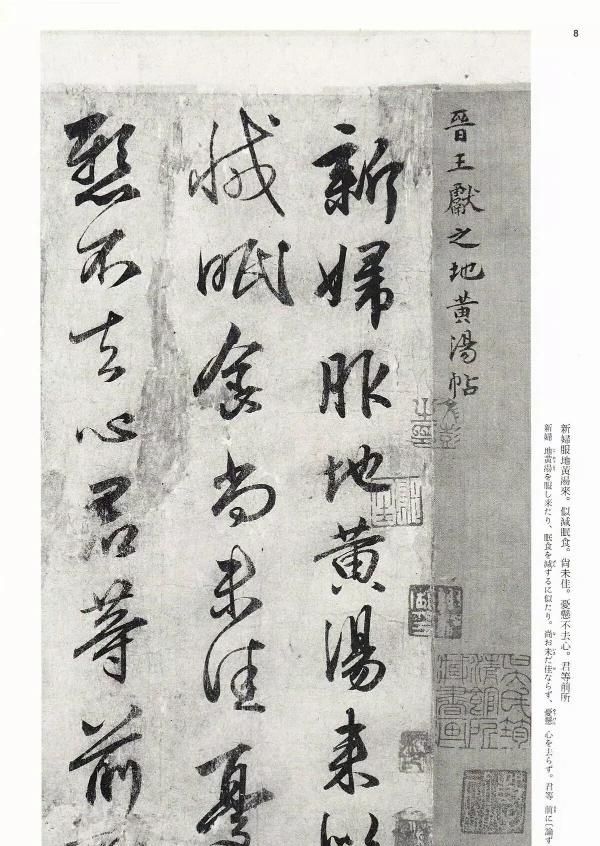 8
晉王獻之地黃湯帖
新婦服地黃湯來似
減眠食尚未佳憂
懸不去心君等前
新婦服地黃湯來。似減眠食。尙未佳。憂懸不去心。君等前所
新婦 地黃湯を服し来たり、眠食を減ずるに似たり。尙お未だ佳ならず、憂懸 心を去らず。君等 前に〔論ず